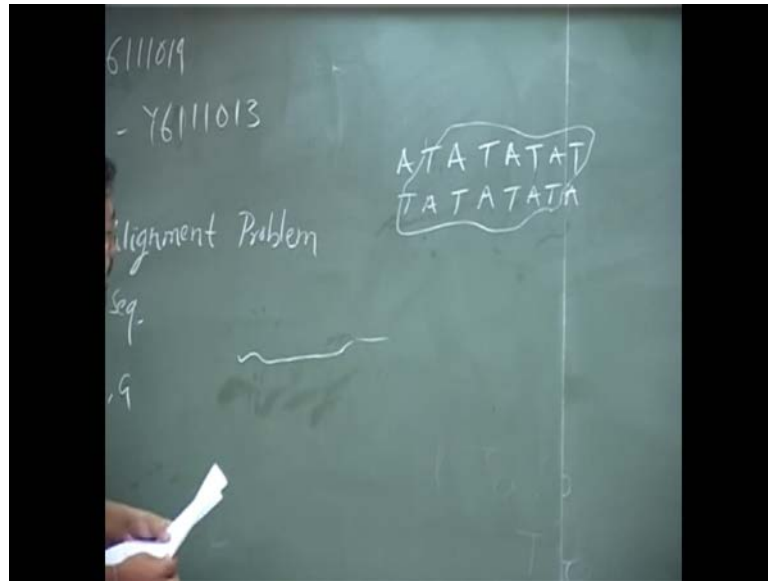 6111019
- Y6111013
ATATATAT
TATATATA
lignment Problem
Seq.
,G